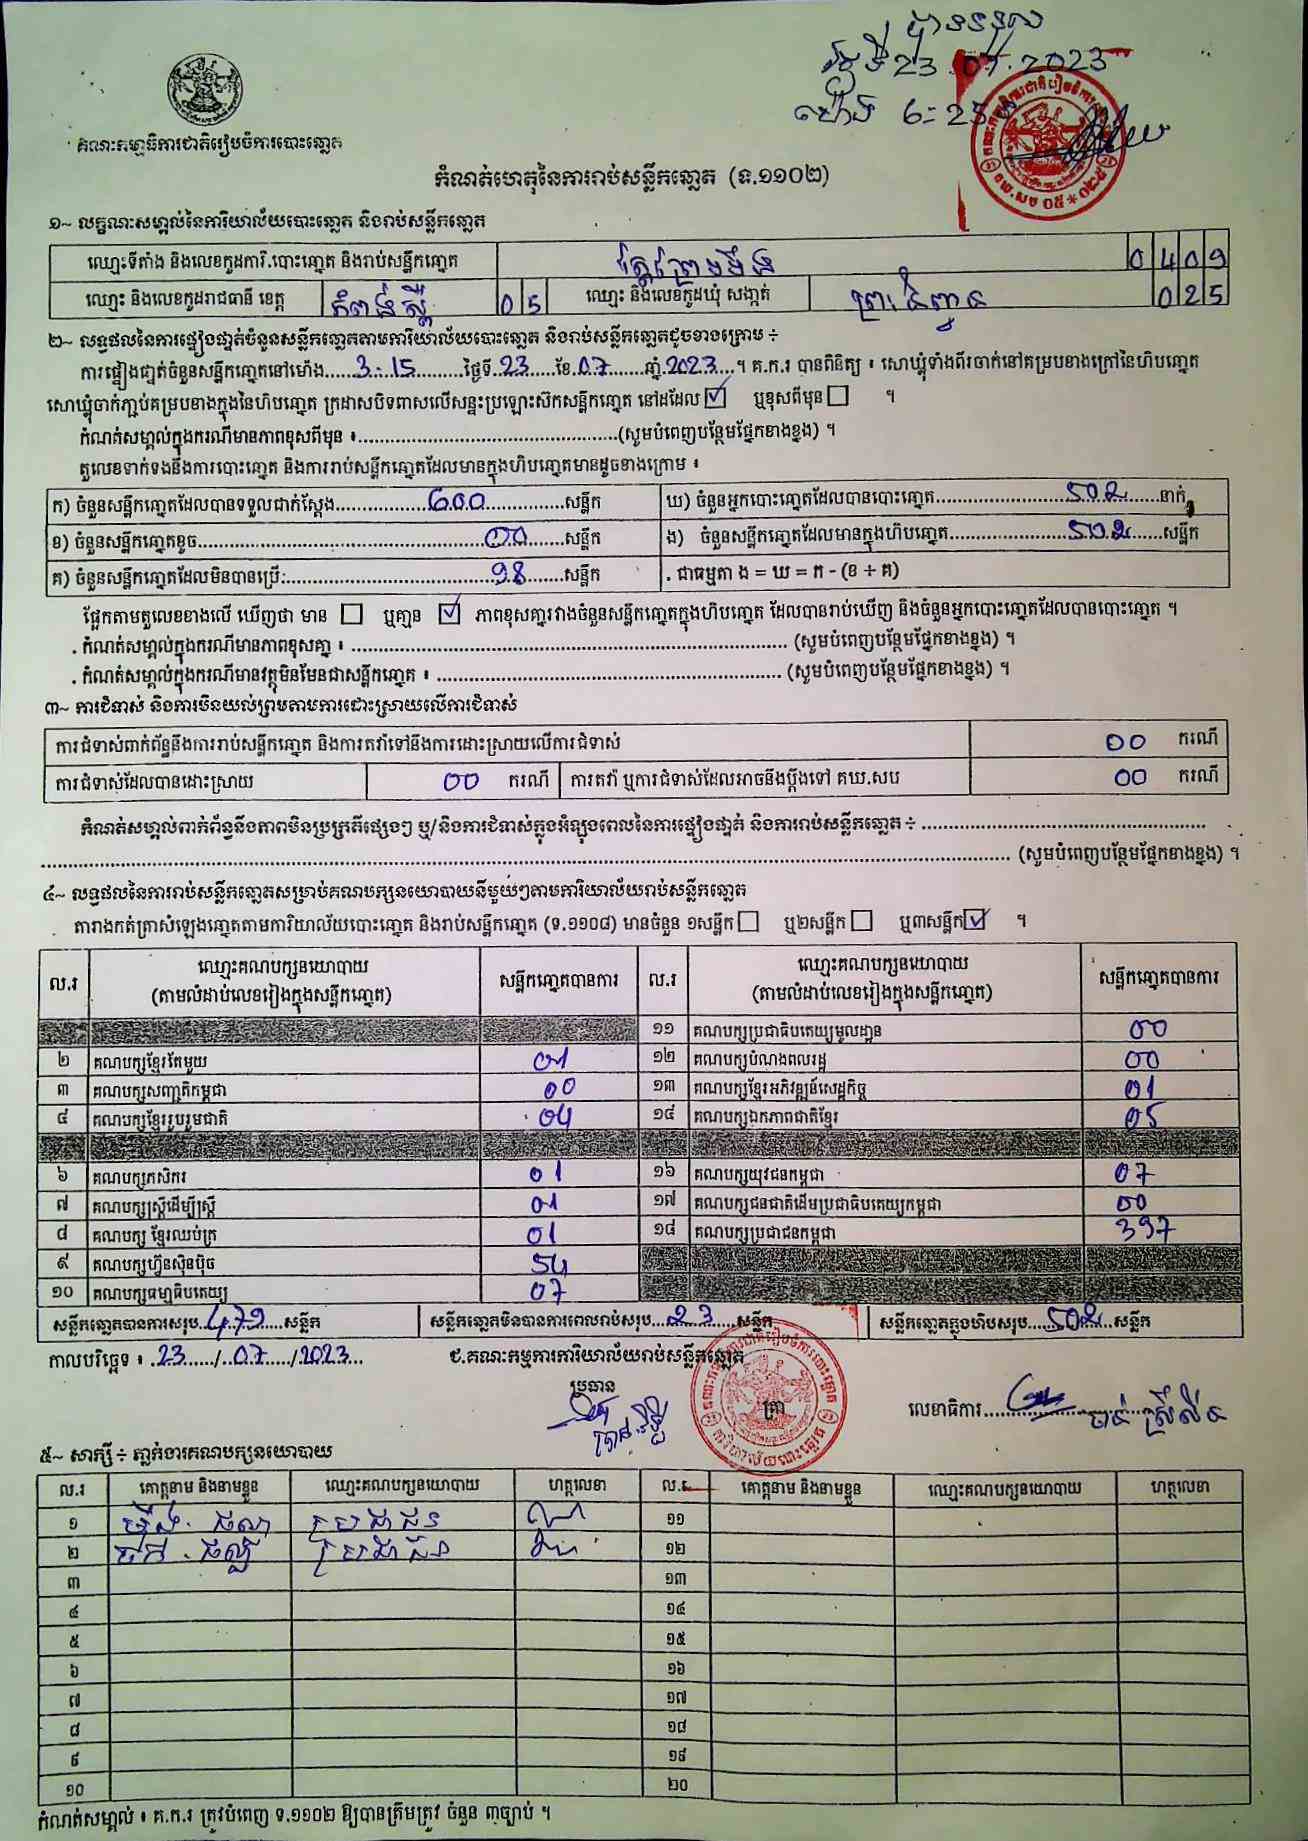 បានទទួល
ថ្ងៃទី 23.07.2023
ម៉ោង 6:25
គណៈកម្មាធិការជាតិរៀបចំការបោះឆ្នោត
កំណត់ហេតុនៃការរាប់សន្លឹកឆ្នោត (ទ.១១០២)
១~ លក្ខណៈសម្គាល់នៃការិយាល័យបោះឆ្នោត និងរាប់សន្លឹកឆ្នោត
ឈ្មោះទីតាំង និងលេខកូដការិ.បោះឆ្នោត និងរាប់សន្លឹកឆ្នោត 0409
ឈ្មោះ និងលេខកូដរាជធានី ខេត្ត កំពង់ស្ពឺ 05 ឈ្មោះ និងលេខកូដឃុំ សង្កាត់ 025
២~ លទ្ធផលនៃការផ្ទៀងផ្ទាត់ចំនួនសន្លឹកឆ្នោតតាមការិយាល័យបោះឆ្នោត និងរាប់សន្លឹកឆ្នោតដូចខាងក្រោម ÷
ការផ្ទៀងផ្ទាត់ចំនួនសន្លឹកឆ្នោតនៅម៉ោង 3-15 ថ្ងៃទី 23 ខែ 07 ឆ្នាំ 2023 ។ គ.ក.រ បានពិនិត្យ ៖ សោឃ្លុំទាំងពីរចាក់នៅគម្របខាងក្រៅនៃហិបឆ្នោត
សោឃ្លុំចាក់ភ្ជាប់គម្របខាងក្នុងនៃហិបឆ្នោត ក្រដាសបិទពាសលើសន្ទះប្រឡោះសិកសន្លឹកឆ្នោត នៅដដែល ☑ ឬខុសពីមុន ☐ ។
កំណត់សម្គាល់ក្នុងករណីមានភាពខុសពីមុន ៖ (សូមបំពេញបន្ថែមផ្នែកខាងខ្នង) ។
តួលេខទាក់ទងនឹងការបោះឆ្នោត និងការរាប់សន្លឹកឆ្នោតដែលមានក្នុងហិបឆ្នោតមានដូចខាងក្រោម ៖
ក) ចំនួនសន្លឹកឆ្នោតដែលបានទទួលជាក់ស្តែង 600 សន្លឹក ឃ) ចំនួនអ្នកបោះឆ្នោតដែលបានបោះឆ្នោត 502 នាក់
ខ) ចំនួនសន្លឹកឆ្នោតខូច 00 សន្លឹក ង) ចំនួនសន្លឹកឆ្នោតដែលមានក្នុងហិបឆ្នោត 502 សន្លឹក
គ) ចំនួនសន្លឹកឆ្នោតដែលមិនបានប្រើ: 98 សន្លឹក . ជាធម្មតា ង = ឃ = ក - (ខ + គ)
ផ្អែកតាមតួលេខខាងលើ ឃើញថា មាន ☐ ឬគ្មាន ☑ ភាពខុសគ្នារវាងចំនួនសន្លឹកឆ្នោតក្នុងហិបឆ្នោត ដែលបានរាប់ឃើញ និងចំនួនអ្នកបោះឆ្នោតដែលបានបោះឆ្នោត ។
. កំណត់សម្គាល់ក្នុងករណីមានភាពខុសគ្នា ៖ (សូមបំពេញបន្ថែមផ្នែកខាងខ្នង) ។
. កំណត់សម្គាល់ក្នុងករណីមានវត្ថុមិនមែនជាសន្លឹកឆ្នោត ៖ (សូមបំពេញបន្ថែមផ្នែកខាងខ្នង) ។
៣~ ការជំទាស់ និងការមិនយល់ព្រមតាមការដោះស្រាយលើការជំទាស់
ការជំទាស់ពាក់ព័ន្ធនឹងការរាប់សន្លឹកឆ្នោត និងការតវ៉ាទៅនឹងការដោះស្រាយលើការជំទាស់ 00 ករណី
ការជំទាស់ដែលបានដោះស្រាយ 00 ករណី ការតវ៉ា ឬការជំទាស់ដែលអាចនឹងប្តឹងទៅ គឃ.សប 00 ករណី
កំណត់សម្គាល់ពាក់ព័ន្ធនឹងភាពមិនប្រក្រតីផ្សេងៗ ឬ/និងការជំទាស់ក្នុងអំឡុងពេលនៃការផ្ទៀងផ្ទាត់ និងការរាប់សន្លឹកឆ្នោត ÷
(សូមបំពេញបន្ថែមផ្នែកខាងខ្នង) ។
៤~ លទ្ធផលនៃការរាប់សន្លឹកឆ្នោតសម្រាប់គណបក្សនយោបាយនីមួយៗតាមការិយាល័យរាប់សន្លឹកឆ្នោត
តារាងកត់ត្រាសំឡេងឆ្នោតតាមការិយាល័យបោះឆ្នោត និងរាប់សន្លឹកឆ្នោត (ទ.១១០៨) មានចំនួន ១សន្លឹក ☐ ឬ២សន្លឹក ☐ ឬ៣សន្លឹក ☑ ។
ល.រ ឈ្មោះគណបក្សនយោបាយ (តាមលំដាប់លេខរៀងក្នុងសន្លឹកឆ្នោត) សន្លឹកឆ្នោតបានការ ល.រ ឈ្មោះគណបក្សនយោបាយ (តាមលំដាប់លេខរៀងក្នុងសន្លឹកឆ្នោត) សន្លឹកឆ្នោតបានការ
១១ គណបក្សប្រជាធិបតេយ្យមូលដ្ឋាន 00
២ គណបក្សខ្មែរតែមួយ 01 ១២ គណបក្សបំណងពលរដ្ឋ 00
៣ គណបក្សសញ្ជាតិកម្ពុជា 00 ១៣ គណបក្សខ្មែរអភិវឌ្ឍន៍សេដ្ឋកិច្ច 01
៤ គណបក្សខ្មែររួបរួមជាតិ 04 ១៤ គណបក្សឯកភាពជាតិខ្មែរ 05
៦ គណបក្សកសិករ 01 ១៦ គណបក្សយុវជនកម្ពុជា 07
៧ គណបក្សស្ត្រីដើម្បីស្ត្រី 01 ១៧ គណបក្សជនជាតិដើមប្រជាធិបតេយ្យកម្ពុជា 00
៨ គណបក្ស ខ្មែរឈប់ក្រ 01 ១៨ គណបក្សប្រជាជនកម្ពុជា 397
៩ គណបក្សហ៊្វុនស៊ិនប៉ិច 54
១០ គណបក្សធម្មាធិបតេយ្យ 07
សន្លឹកឆ្នោតបានការសរុប 479 សន្លឹក សន្លឹកឆ្នោតមិនបានការពេលរាប់សរុប 23 សន្លឹក សន្លឹកឆ្នោតក្នុងហិបសរុប 502 សន្លឹក
កាលបរិច្ឆេទ ៖ 23/07/2023 ជ.គណៈកម្មការការិយាល័យរាប់សន្លឹកឆ្នោត
ប្រធាន ត្រា លេខាធិការ
៥~ សាក្សី ÷ ភ្នាក់ងារគណបក្សនយោបាយ
ល.រ គោត្តនាម និងនាមខ្លួន ឈ្មោះគណបក្សនយោបាយ ហត្ថលេខា ល.រ គោត្តនាម និងនាមខ្លួន ឈ្មោះគណបក្សនយោបាយ ហត្ថលេខា
១ ប្រជាជន ១១
២ ប្រជាជន ១២
៣ ១៣
៤ ១៤
៥ ១៥
៦ ១៦
៧ ១៧
៨ ១៨
៩ ១៩
១០ ២០
កំណត់សម្គាល់ ៖ គ.ក.រ ត្រូវបំពេញ ទ.១១០២ ឱ្យបានត្រឹមត្រូវ ចំនួន ៣ច្បាប់ ។